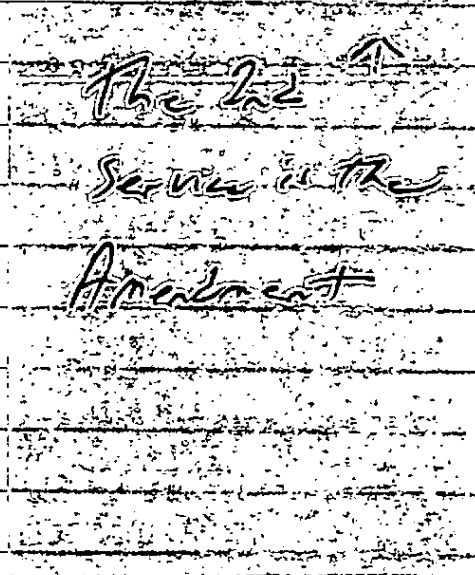 The 2nd ↑
Service is the
Amendment